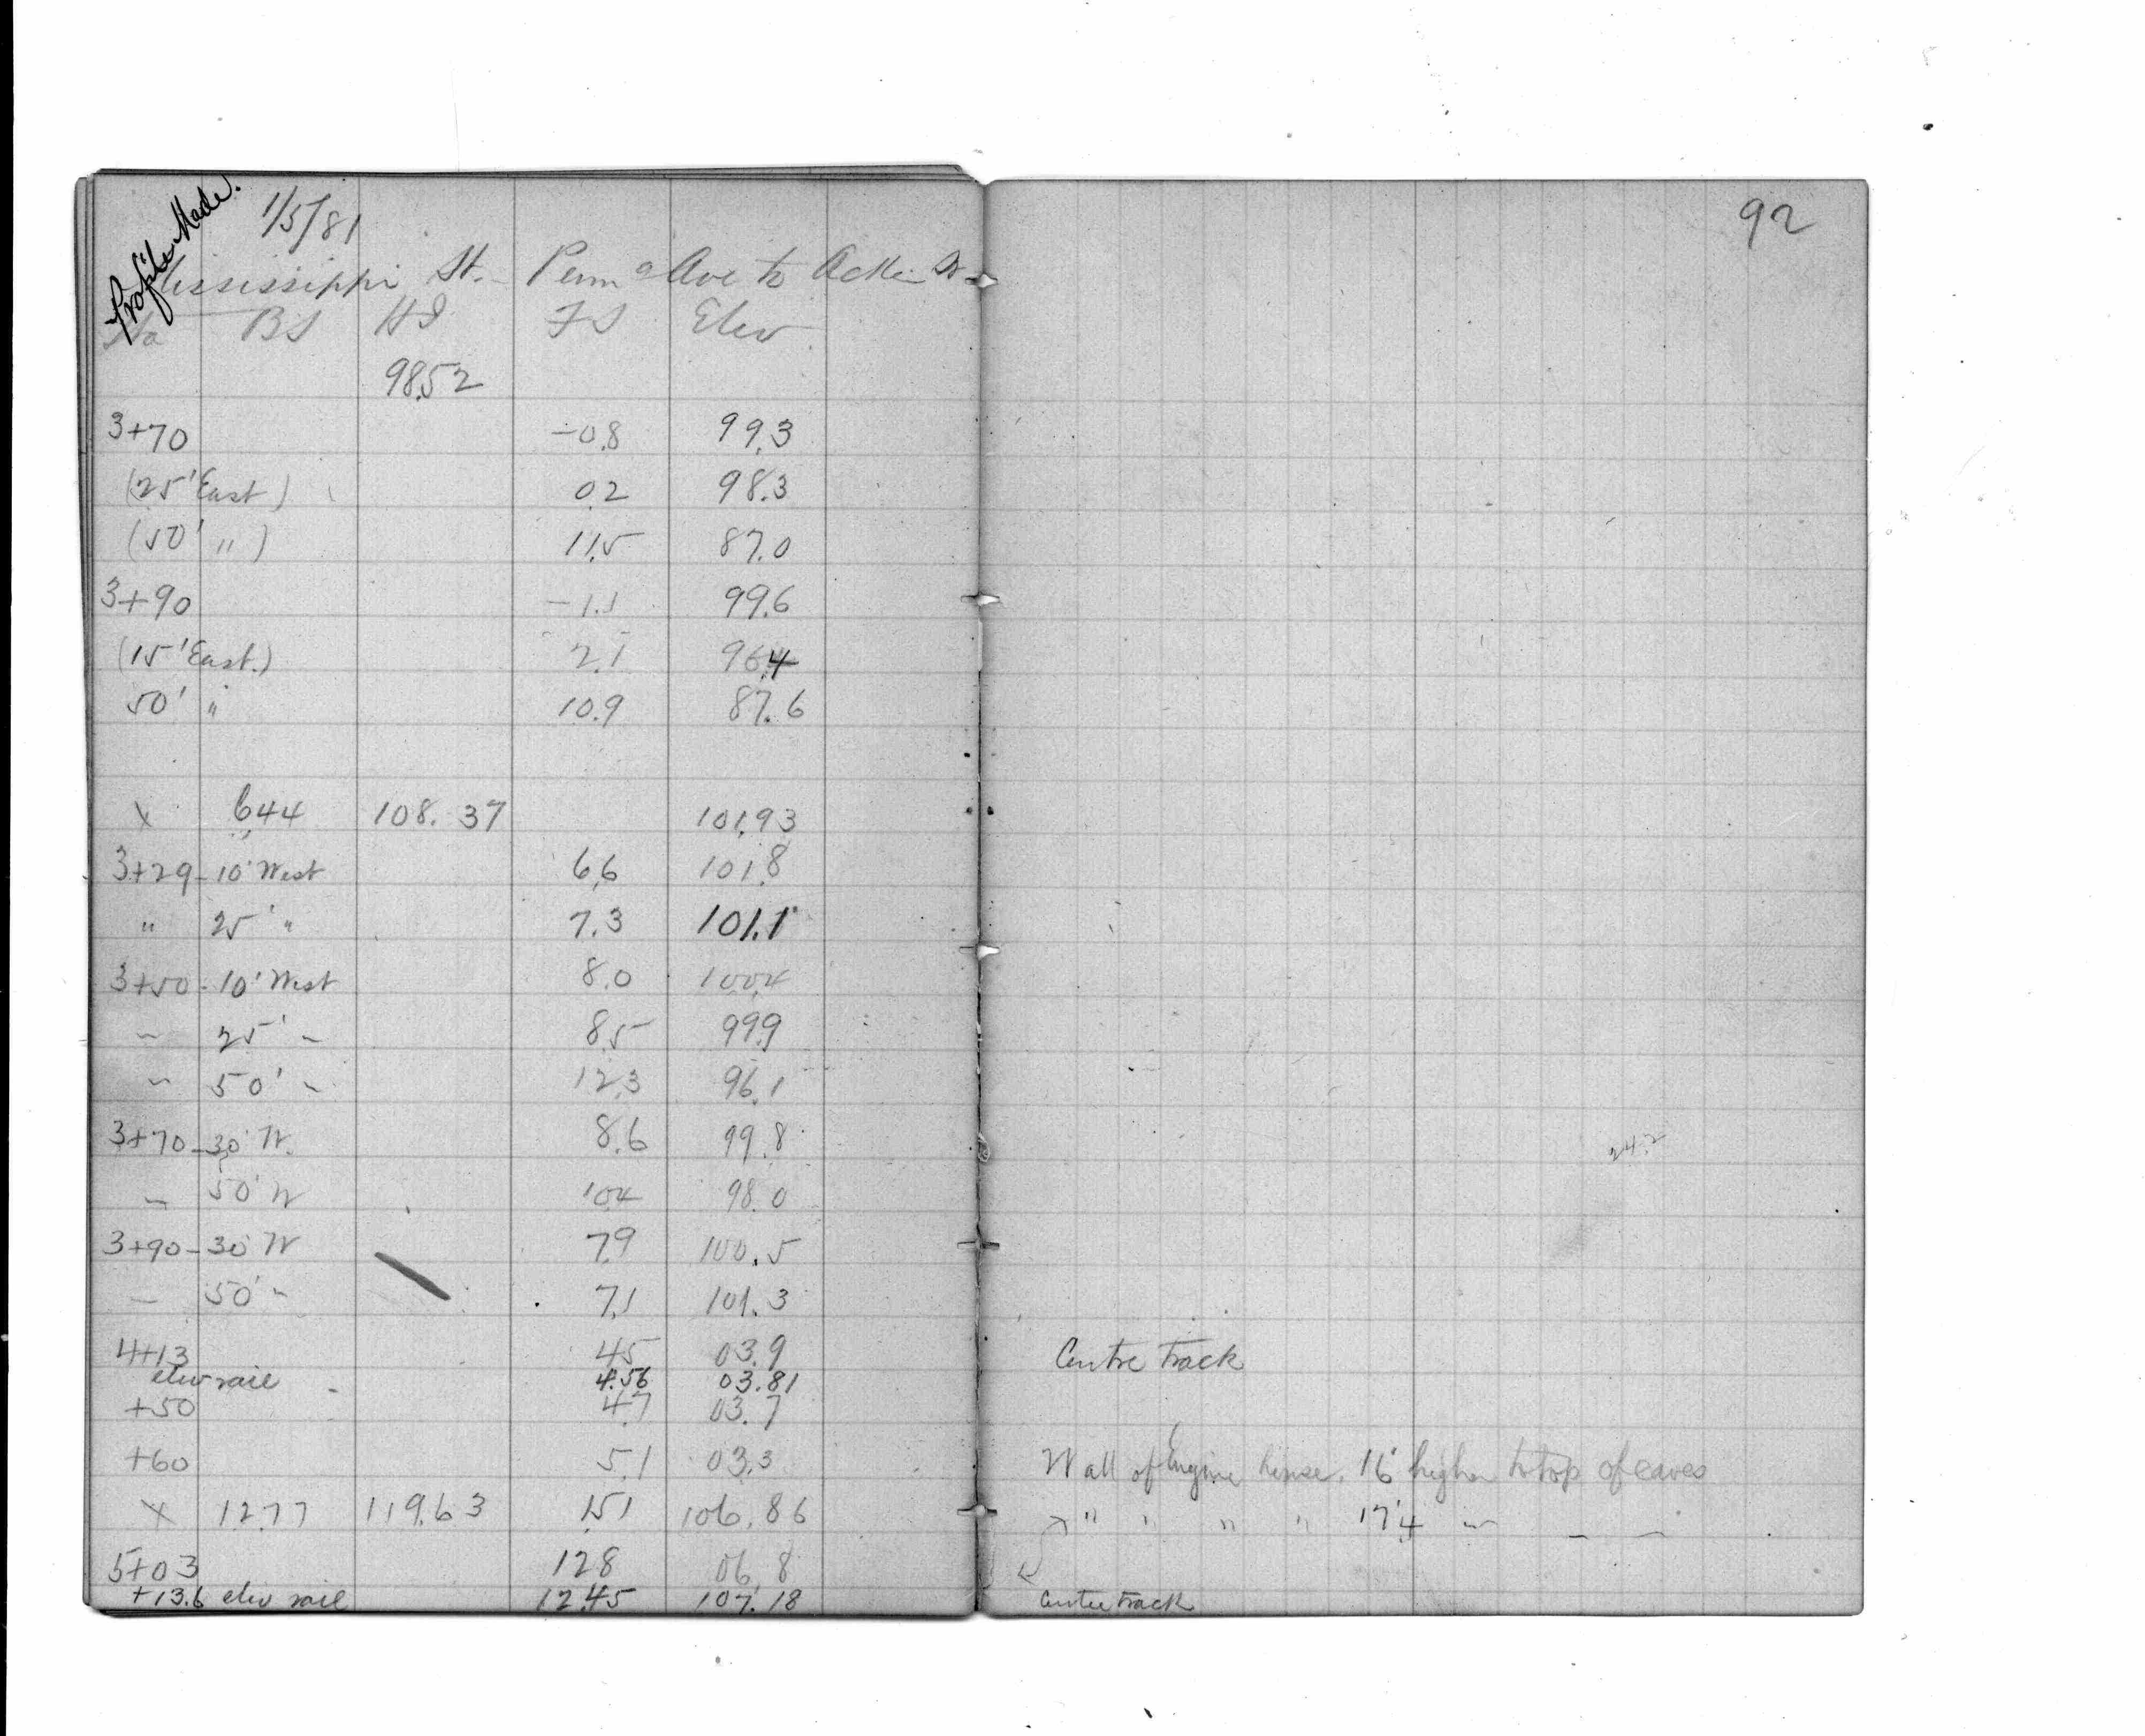 Profile Made.
1/5/81
Mississippi St. - Penn a Ave to Acker St
Sta BS HI FS Elev
98.52
3+70 -0.8 99.3
(25' East) 0.2 98.3
(50' ") 11.5 87.0
3+90 -1.1 99.6
(15' East.) 2.1 96.4
50' " 10.9 87.6
x 6.44 108.37 101.93
3+29 - 10' West 6.6 101.8
" 25' " 7.3 101.1
3+50 - 10' West 8.0 100.4
~ 25' ~ 8.5 99.9
~ 50' ~ 12.3 96.1
3+70 - 30' W. 8.6 99.8
~ 50' W 10.4 98.0
3+90 - 30' W 7.9 100.5
~ 50' ~ 7.1 101.3
4+13 4.5 03.9
elev rail - 4.56 03.81
+50 4.7 03.7
+60 5.1 03.3
x 12.77 119.63 1.51 106.86
5+03 12.8 06.8
+13.6 elev rail 12.45 107.18
92
24.2
Centre track
Wall of Engine house. 16' higher to top of eaves
" " " " 17.4 ~ ~ ~
Centre track